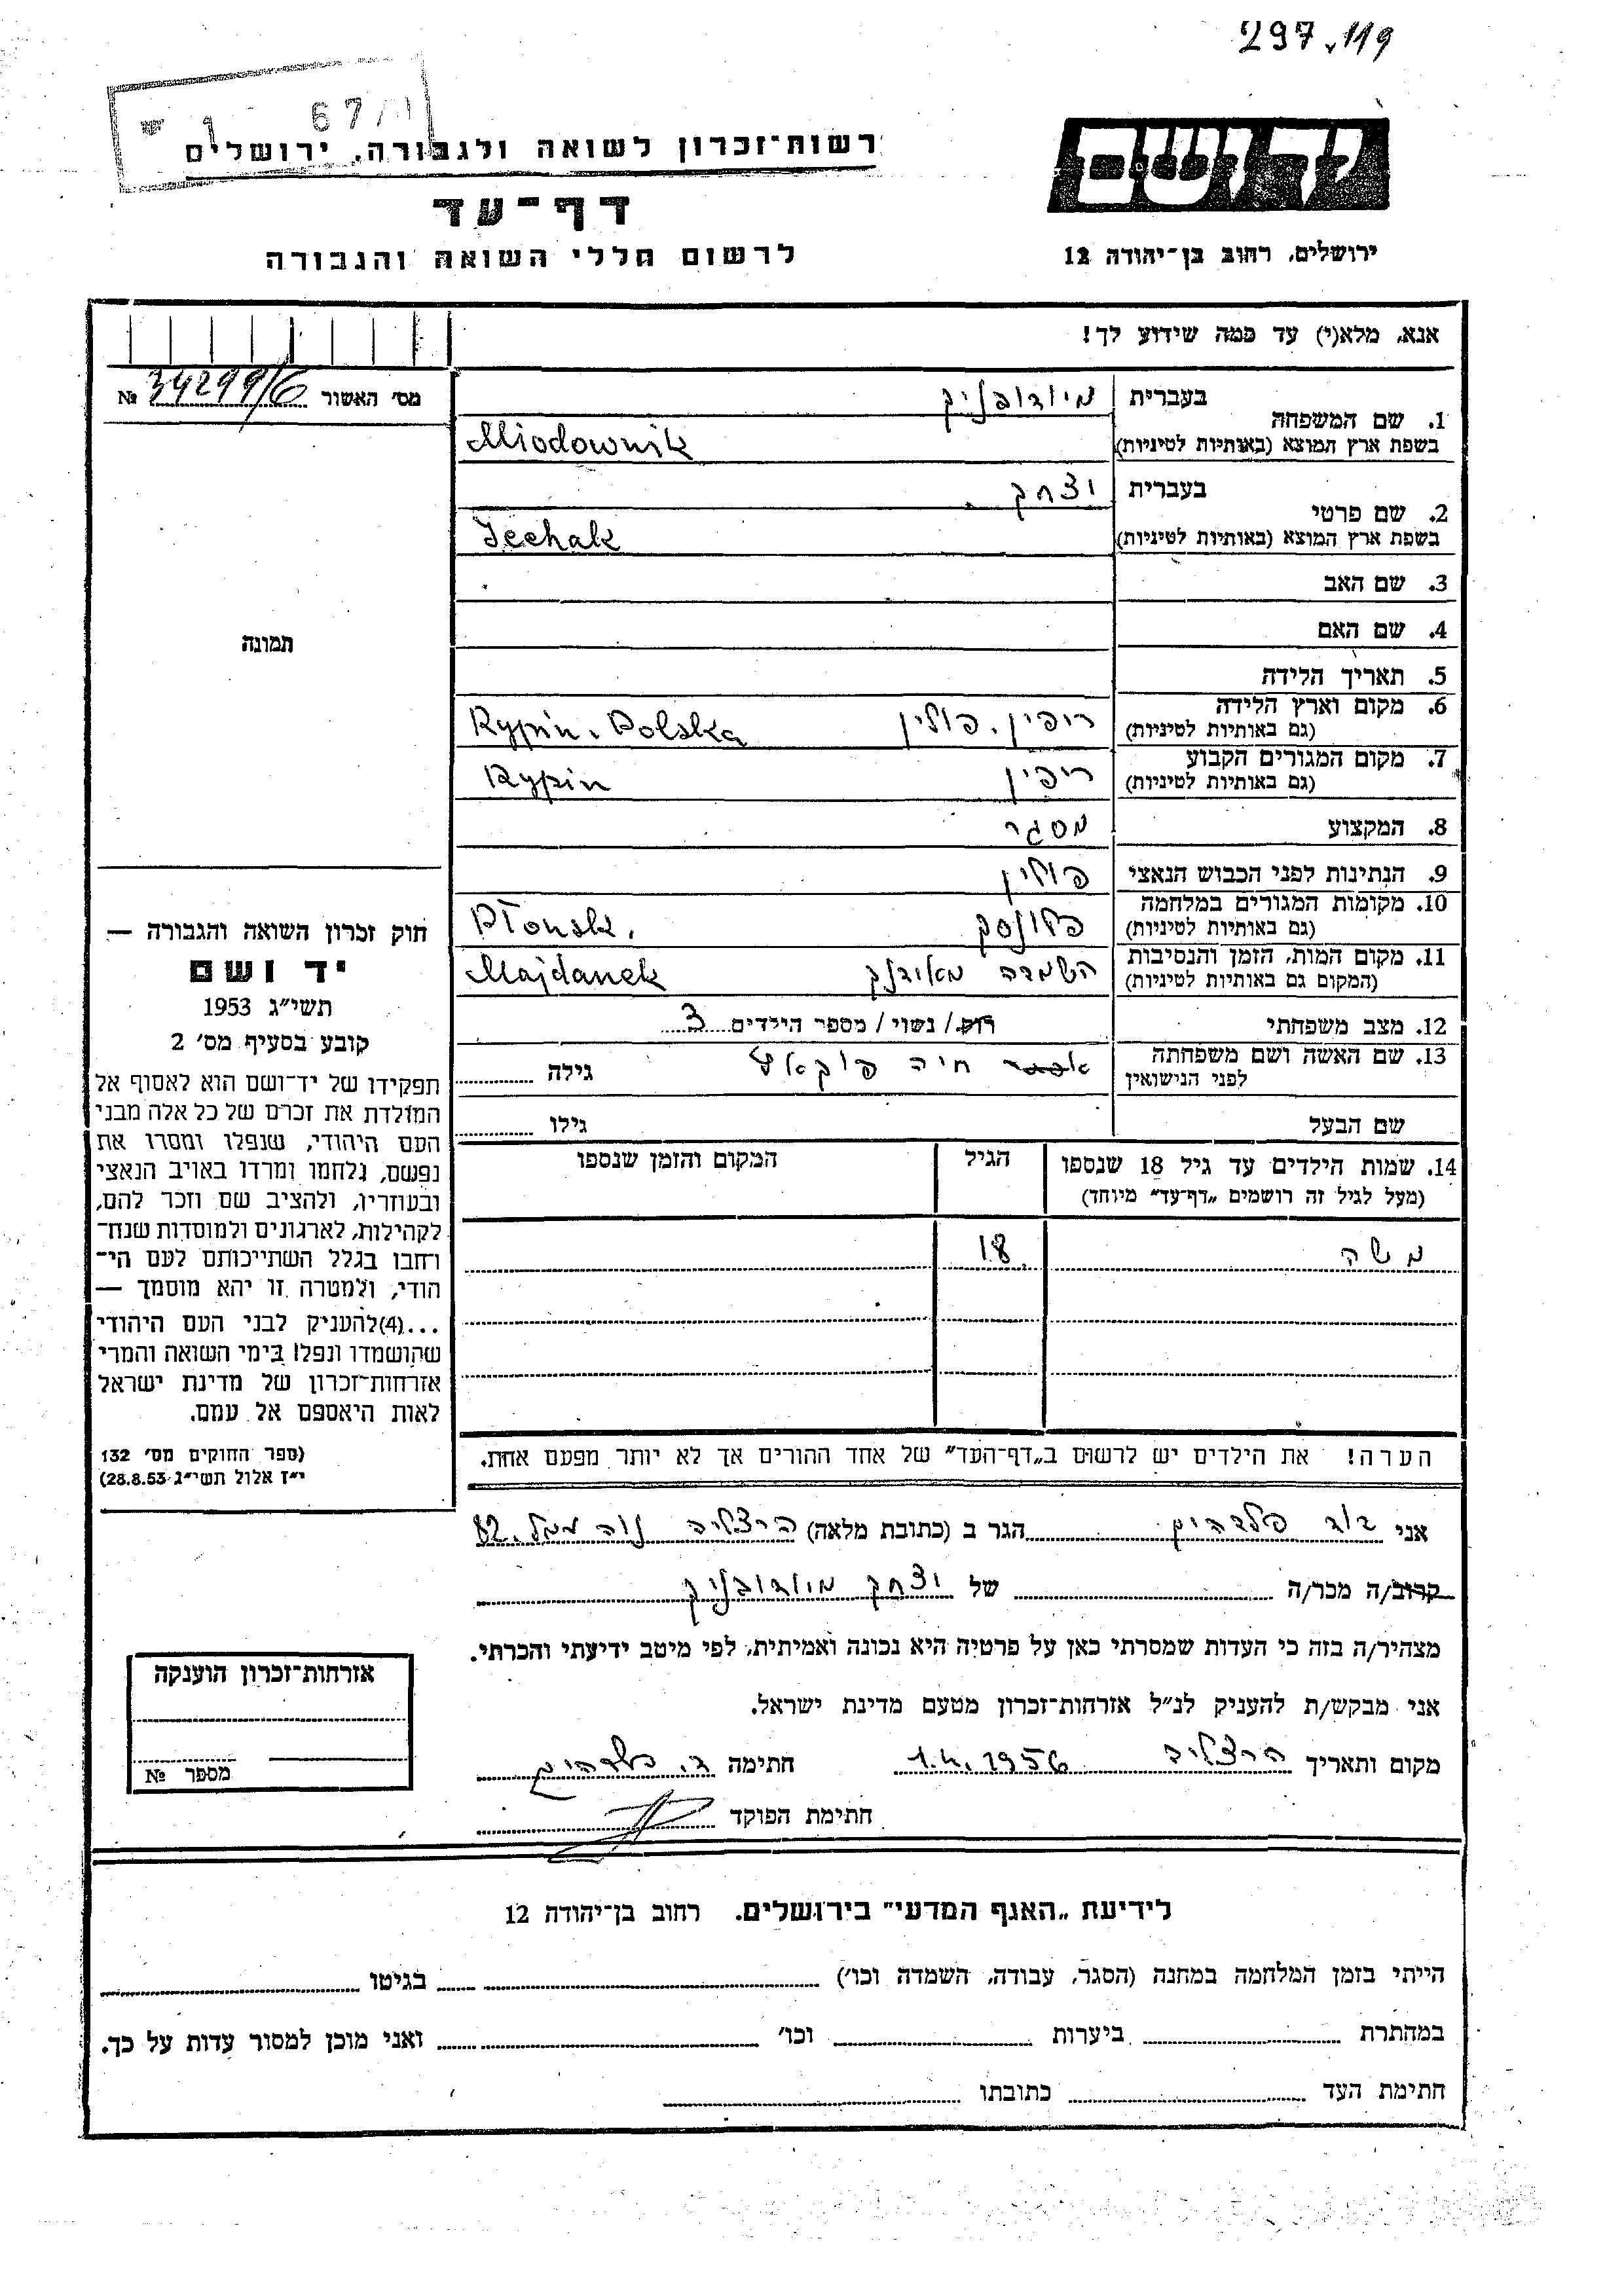 297.119
67/1
רשות־זכרון לשואה ולגבורה, ירושלים
דף־עד
לרשום חללי השואה והגבורה
יד ושם
ירושלים, רחוב בן־יהודה 12
אנא, מלא(י) עד כמה שידוע לך!
מס׳ האשור 34299/6 №
1. שם המשפחה
בעברית מיודובניק
בשפת ארץ המוצא (באותיות לטיניות) Miodownik
2. שם פרטי
בעברית יצחק
בשפת ארץ המוצא (באותיות לטיניות) Icchak
3. שם האב
4. שם האם
5. תאריך הלידה
6. מקום וארץ הלידה ריפין, פולין Rypin, Polska
(גם באותיות לטיניות)
7. מקום המגורים הקבוע ריפין Rypin
(גם באותיות לטיניות)
8. המקצוע מסגר
9. הנתינות לפני הכבוש הנאצי פולין
10. מקומות המגורים במלחמה פלונסק Płonsk.
(גם באותיות לטיניות)
11. מקום המות, הזמן והנסיבות השמדה מאידנק Majdanek
(המקום גם באותיות לטיניות)
12. מצב משפחתי רוק/ נשוי/ מספר הילדים 3
13. שם האשה ושם משפחתה חיה גילה
לפני הנישואין
שם הבעל גילו
14. שמות הילדים עד גיל 18 שנספו הגיל המקום והזמן שנספו
(מעל לגיל זה רושמים „דף־עד״ מיוחד)
משה 18
הערה! את הילדים יש לרשום ב„דף־העד״ של אחד ההורים אך לא יותר מפעם אחת.
תמונה
חוק זכרון השואה והגבורה —
יד ושם
תשי״ג 1953
קובע בסעיף מס׳ 2
תפקידו של יד־ושם הוא לאסוף אל
המולדת את זכרם של כל אלה מבני
העם היהודי, שנפלו ומסרו את
נפשם, נלחמו ומרדו באויב הנאצי
ובעוזריו, ולהציב שם וזכר להם,
לקהילות, לארגונים ולמוסדות שנח־
רחבו בגלל השתייכותם לעם הי־
הודי, ולמטרה זו יהא מוסמך —
...(4)להעניק לבני העם היהודי
שהושמדו ונפלו בימי השואה והמרי
אזרחות־זכרון של מדינת ישראל
לאות היאספם אל עמם.
(ספר החוקים מס׳ 132
י״ז אלול תשי״ג 28.8.53)
אני דוד פלדהים הגר ב (כתובת מלאה) הרצליה נוה עמל 82
קרוב/ה מכר/ה של יצחק מיודובניק
מצהיר/ה בזה כי העדות שמסרתי כאן על פרטיה היא נכונה ואמיתית, לפי מיטב ידיעתי והכרתי.
אני מבקש/ת להעניק לנ״ל אזרחות־זכרון מטעם מדינת ישראל.
מקום ותאריך הרצליה 1956 חתימה ד. פלדהים
חתימת הפוקד
אזרחות־זכרון הוענקה
מספר №
לידיעת „האגף המדעי״ בירושלים, רחוב בן־יהודה 12
הייתי בזמן המלחמה במחנה (הסגר, עבודה, השמדה וכו׳) בגיטו
במהתרת ביערות וכו׳ ואני מוכן למסור עדות על כך.
חתימת העד כתובתו